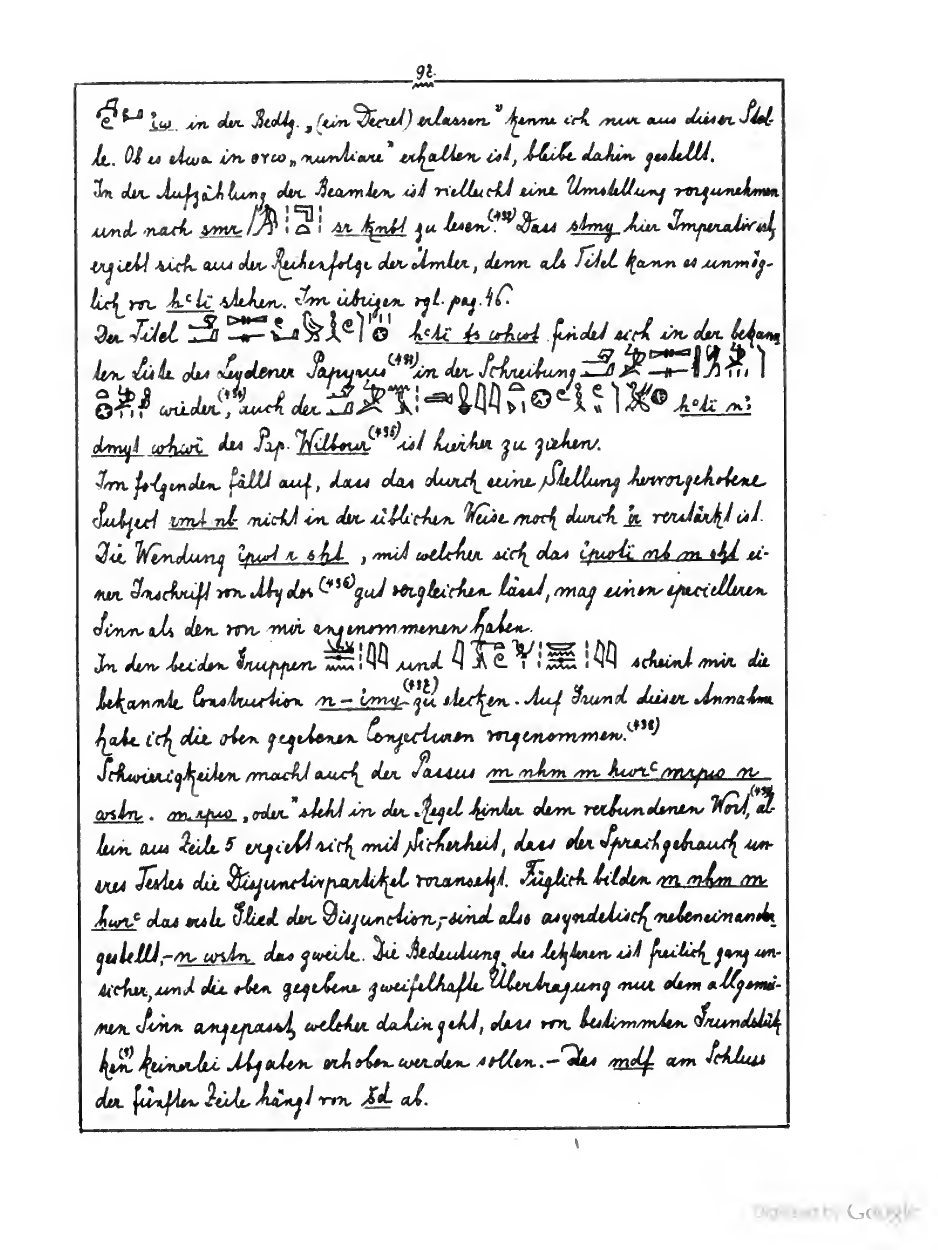 92.
iw. in der Bedtg. „(ein Decret) erlassen" kenne ich nur aus dieser Stel-
le. Ob es etwa in „nuntiare" erhalten ist, bleibe dahin gestellt.
In der Aufzählung der Beamten ist vielleicht eine Umstellung vorzunehmen
und nach smr sr knbt zu lesen. Dass stmy hier Imperativ ist,
ergiebt sich aus der Reihenfolge der Ämter, denn als Titel kann es unmög-
lich vor ḥꜥti stehen. Im übrigen vgl. pag. 46.
Der Titel ḥꜥti findet sich in der bekann
ten Liste des Leydener Papyrus in der Schreibung
wieder, auch der ḥꜥti
dmyt des Pap. Wilbour (435) ist hierher zu ziehen.
Im folgenden fällt auf, dass das durch seine Stellung hervorgehobene
Subject rmt nb nicht in der üblichen Weise noch durch ir verstärkt ist.
Die Wendung ipwt r sḫt, mit welcher sich das ipwti nb m sḫt ei-
ner Inschrift von Abydos (436) gut vergleichen lässt, mag einen specielleren
Sinn als den von mir angenommenen haben.
In den beiden Gruppen und scheint mir die
bekannte Construction n-imy zu stecken. Auf Grund dieser Annahme
habe ich die oben gegebenen Conjecturen vorgenommen. (438)
Schwierigkeiten macht auch der Passus m nhm m hwrꜥ mrpw n
wstn. m.rpw „oder" steht in der Regel hinter dem verbundenen Wort, al-
lein aus Zeile 5 ergiebt sich mit Sicherheit, dass der Sprachgebrauch un-
seres Textes die Disjunctivpartikel voransetzt. Füglich bilden m nhm m
hwrꜥ das erste Glied der Disjunction,-sind also asyndetisch nebeneinander
gestellt,- n wstn das zweite. Die Bedeutung des letzteren ist freilich ganz un-
sicher, und die oben gegebene zweifelhafte Übertragung nur dem allgemei-
nen Sinn angepasst, welcher dahin geht, dass von bestimmten Grundstük
ken (?) keinerlei Abgaben erhoben werden sollen. - Das mdf am Schluss
der fünften Zeile hängt von šd ab.
Digitized by Google